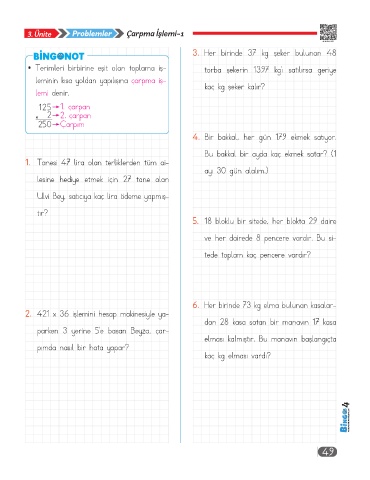 3. Ünite Problemler Çarpma İşlemi-1
BİNGONOT
• Terimleri birbirine eşit olan toplama iş-
leminin kısa yoldan yapılışına çarpma iş-
lemi denir.
125 → 1. çarpan
x 2 → 2. çarpan
250 → Çarpım
1. Tanesi 47 lira olan terliklerden tüm ai-
lesine hediye etmek için 27 tane alan
Ulvi Bey, satıcıya kaç lira ödeme yapmış-
tır?
2. 421 x 36 işlemini hesap makinesiyle ya-
parken 3 yerine 5'e basan Beyza, çar-
pımda nasıl bir hata yapar?
3. Her birinde 37 kg şeker bulunan 48
torba şekerin 1397 kg'ı satılırsa geriye
kaç kg şeker kalır?
4. Bir bakkal, her gün 179 ekmek satıyor.
Bu bakkal bir ayda kaç ekmek satar? (1
ayı 30 gün alalım.)
5. 18 bloklu bir sitede, her blokta 29 daire
ve her dairede 8 pencere vardır. Bu si-
tede toplam kaç pencere vardır?
6. Her birinde 73 kg elma bulunan kasalar-
dan 28 kasa satan bir manavın 17 kasa
elması kalmıştır. Bu manavın başlangıçta
kaç kg elması vardı?
BİNGO 4
49